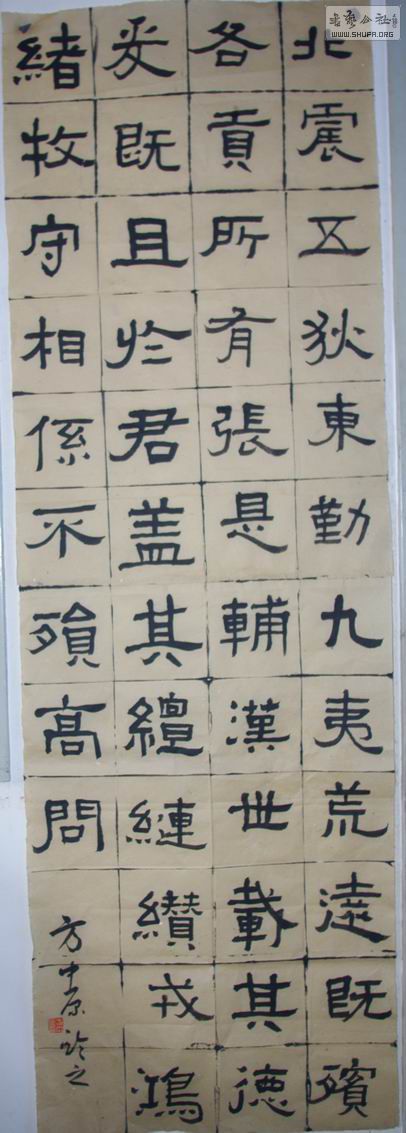 北震五狄東勤九夷荒遠既殯
各貢所有張是輔漢世載其德
爰既且於君盖其繵縺纘戎鴻
緒牧守相係不殞高問
方中原臨之
書藝公社
WWW.SHUFA.ORG